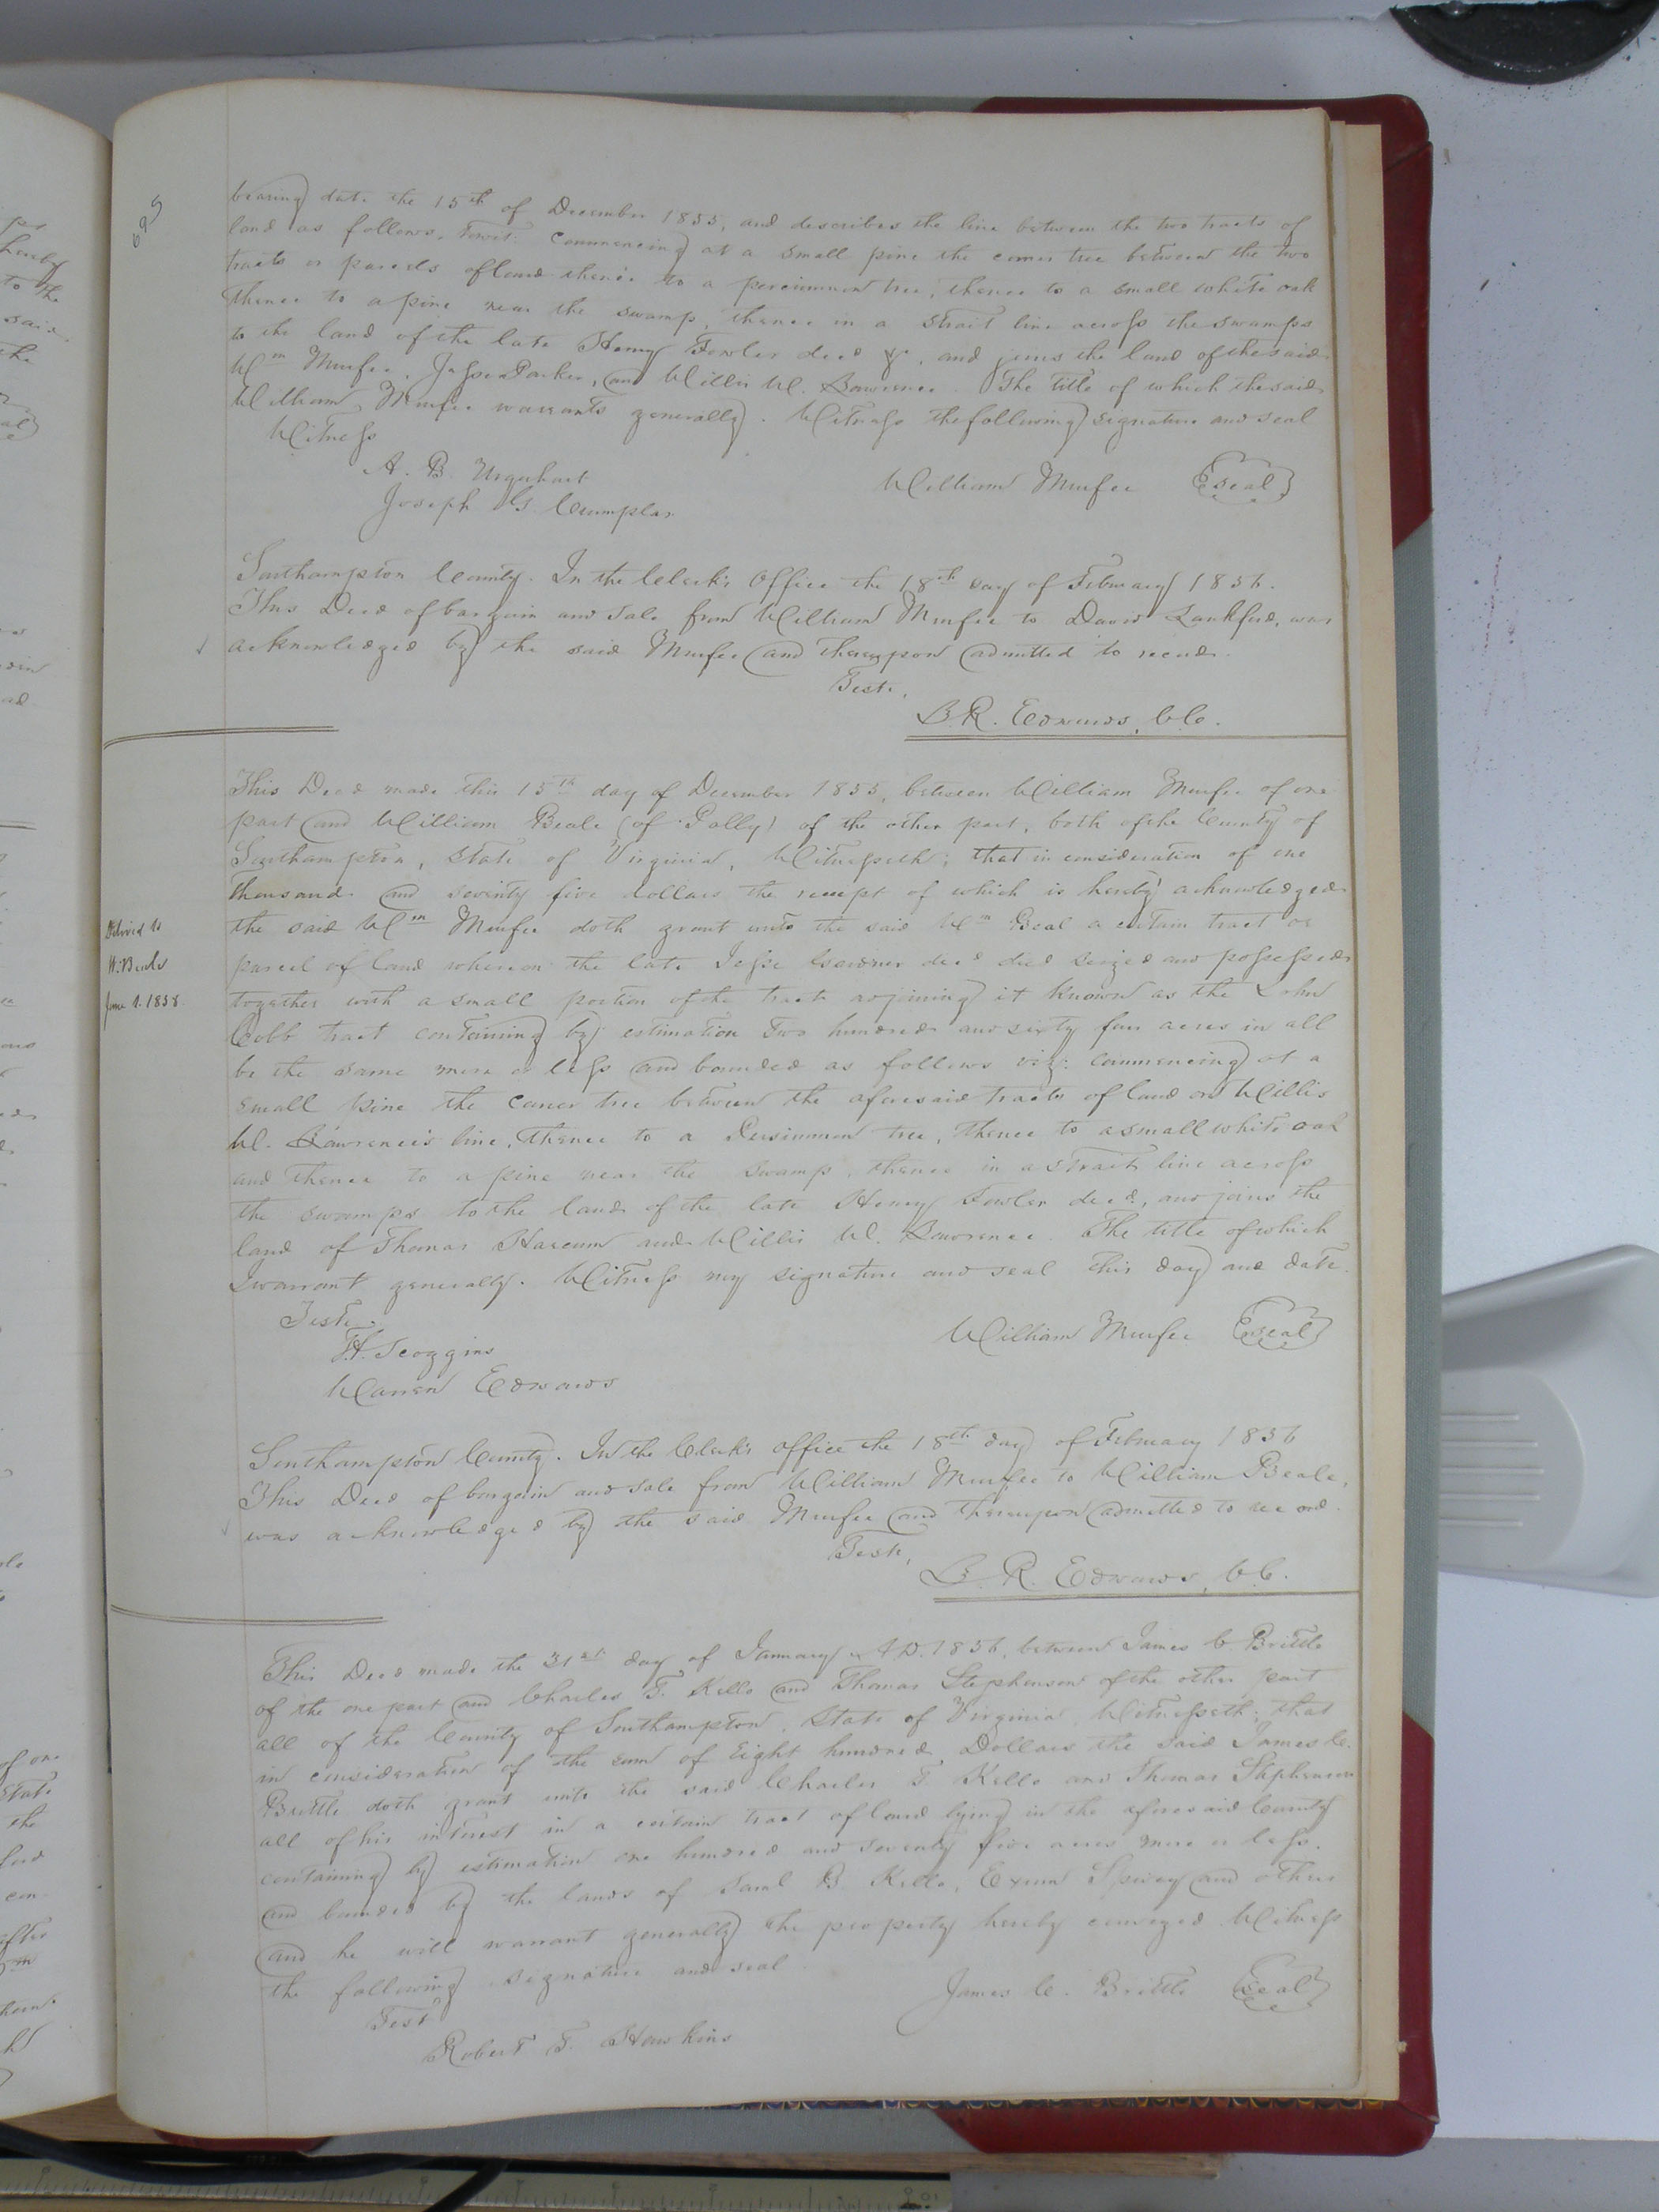 695
bearing date the 15th of December 1855, and describes the line between the two tracts of
land as follows, towit: Commencing at a small pine the corner tree between the two
tracts or parcels of land thence to a persimmon tree, thence to a small white oak
thence to a pine near the swamp, thence in a strait line across the swamps
to the land of the late Henry Fowler decd &c, and joins the land of the said
Wm Murfee, Parker, and Willis W. Lawrence. The title of which the said
William Murfee warrants generally. Witness the following signature and seal
Witness
A. B. Urquhart
William Murfee seal
Joseph G. Crumpler
Southampton County. In the Clerk's Office the 18th day of February 1856.
This Deed of bargain and sale from William Murfee to David Lankford, was
acknowledged by the said Murfee and thereupon admitted to record.
Teste,
L. R. Edwards, CC.
This Deed made this 15th day of December 1855, between William Murfee of one
part and William Beale (of Polly) of the other part, both of the County of
Southampton, State of Virginia, Witnesseth; that in consideration of one
thousand and seventy five dollars the receipt of which is hereby acknowledged
the said Wm Murfee doth grant unto the said Wm Beal a certain tract or
parcel of land whereon the late Jesse decd died seized and possessed
together with a small portion of the tract adjoining it known as the John
Cobb tract containing by estimation two hundred and sixty four acres in all
be the same more or less and bounded as follows viz: commencing at a
small pine the corner tree between the aforesaid tracts of land on Willis
W. Lawrence's line, thence to a Persimmon tree, thence to a small white oak
and thence to a pine near the swamp, thence in a strait line across
the swamps to the land of the late Henry Fowler decd, and joins the
land of Thomas Harcum and Willis W. Lawrence. The title of which
I warrant generally. Witness my signature and seal this day and date.
Delivd to
W. Beale
June 1. 1858.
Teste.
William Murfee seal
Scoggins
Warren Edwards
Southampton County. In the Clerk's office the 18th day of February 1856
This Deed of bargain and sale from William Murfee to William Beale,
was acknowledged by the said Murfee and thereupon admitted to record.
Teste,
L. R. Edwards, CC.
This Deed made the 31st day of January A D. 1856, between James C Brittle
of the one part and Charles F. Kello and Thomas Stephenson of the other part
all of the County of Southampton, State of Virginia, Witnesseth; that
in consideration of the sum of Eight hundred Dollars the said James C.
Brittle doth grant unto the said Charles F. Kello and Thomas Stephenson
all of his interest in a certain tract of land lying in the aforesaid County
containing by estimation one hundred and seventy five acres more or less.
and bounded by the lands of Saml B. Kello, Exum Spivey and others
and he will warrant generally the property hereby conveyed. Witness
the following signature and seal
James C. Brittle seal
Test
Robert F. Hawkins